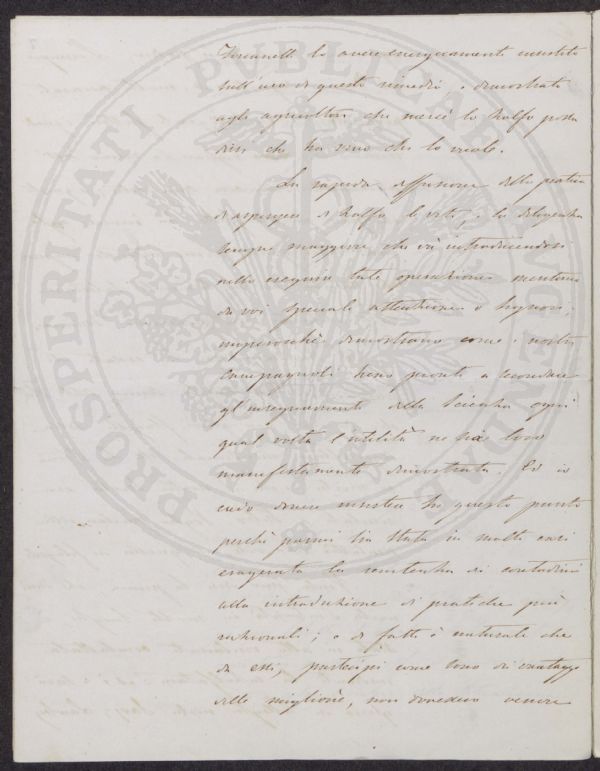 avere energicamente insistito
sull'uso di questo rimedio, e dimostrato
agli agricoltori che mercè lo zolfo possa
dirsi che ha vino chi lo vuole.
La rapida diffusione della pratica
di aspergere di zolfo le viti, e la diligenza
sempre maggiore che si va introducendo
nello eseguire tale operazione meritano
da voi speciale attenzione o Signori,
imperocchè dimostrano come i nostri
campagnoli sieno pronti a secondare
gl'insegnamenti della Scienza ogni
qual volta l'utilità ne sia loro
manifestamente dimostrata. Ed io
credo dovere insistere su questo punto
perchè parmi sia stata in molti casi
esagerata la resistenza dei contadini
alla introduzione di pratiche più
razionali; e di fatti è naturale che
da essi, partecipi come sono dei vantaggi
delle migliorie, non dovesse venire
PROSPERITATI PUBLICAE AUGENDAE